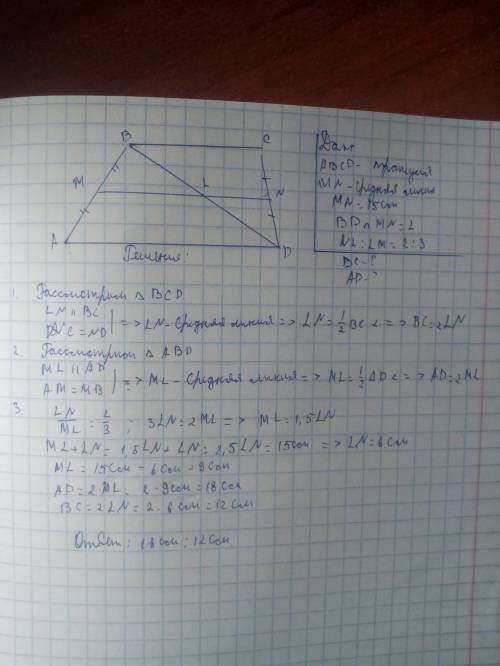 B
C
M
L
N
A
D
Дано
ABCD - трапеция
MN - средняя линия
MN = 15см
BD ∩ MN = L
NL : LM = 2 : 3
BC - ?
AD - ?
Решение:
1. Рассмотрим Δ BCD
LN || BC
NC = ND | => LN - средняя линия => LN = 1/2 BC => BC = 2LN
2. Рассмотрим Δ ABD
ML || AD
AM = MB | => ML - средняя линия => ML = 1/2 AD => AD = 2ML
3. LN/ML = 2/3 ; 3LN = 2ML => ML = 1,5LN
ML + LN = 1,5LN + LN = 2,5LN = 15см => LN = 6см
ML = 15см - 6см = 9см
AD = 2ML = 2 · 9см = 18см
BC = 2LN = 2 · 6см = 12см
Ответ: 18см ; 12см